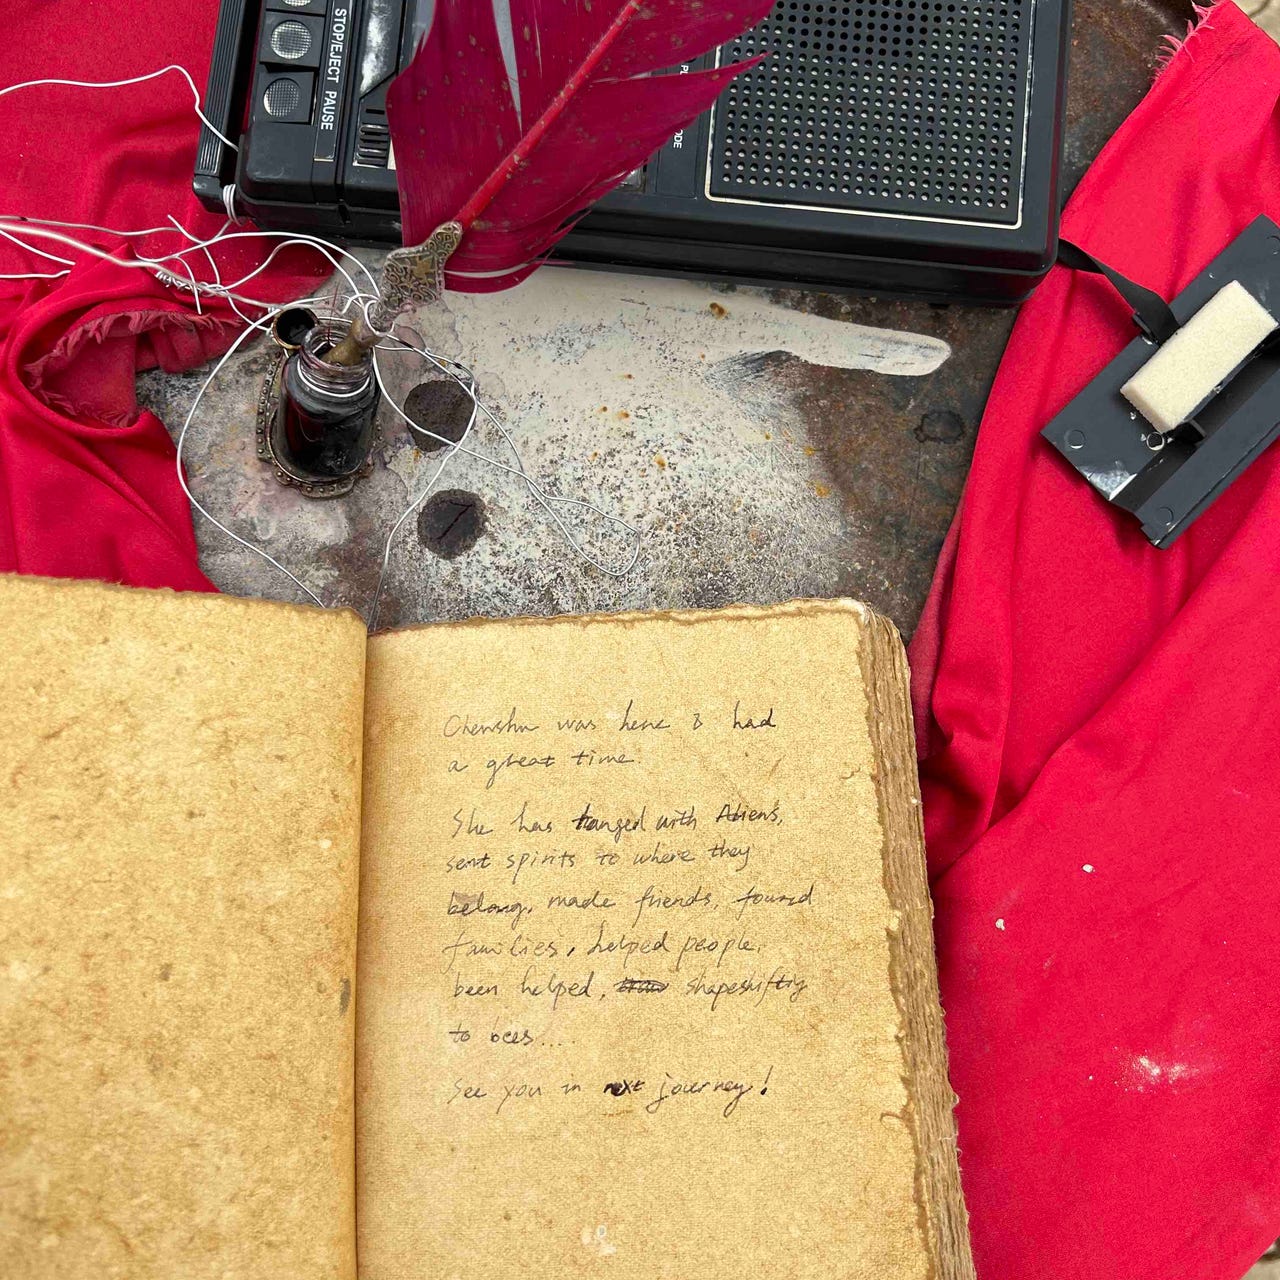 STOP/EJECT PAUSE
Chenshu was here & had
a great time.
She has hanged with Aliens,
sent spirits to where they
belong, made friends, found
families, helped people,
been helped, shapeshiftig
to bees...
See you in next journey!